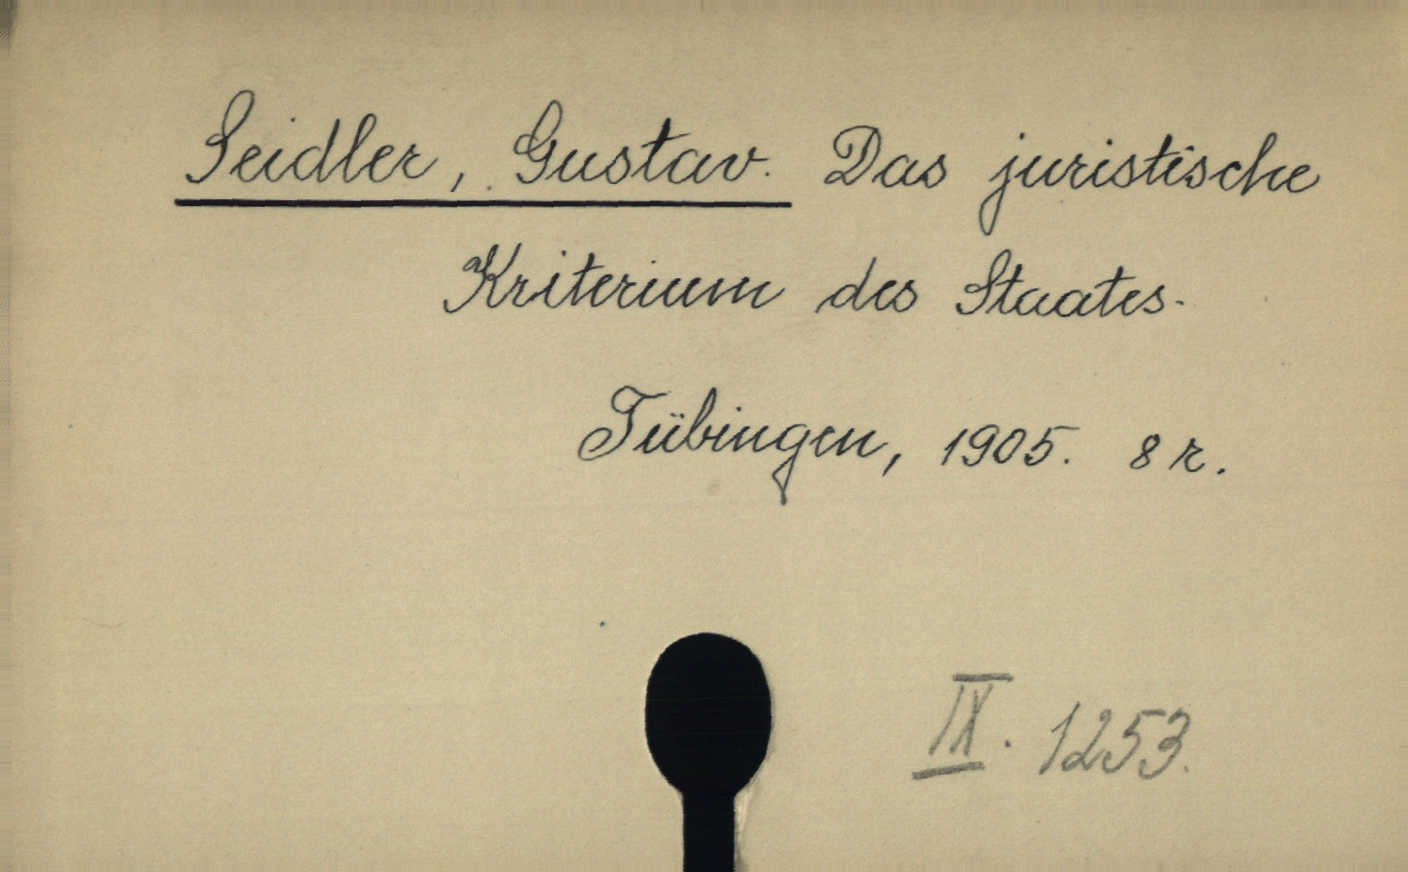 Seidler, Gustav. Das juristische
Kriterium des Staates.
Tübingen, 1905. 8 r.
IX. 1253.